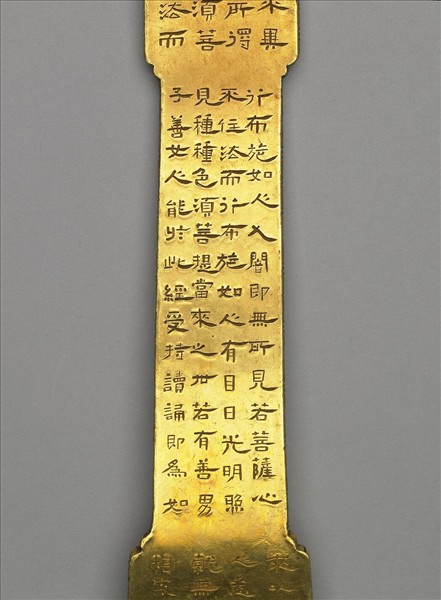 不異
所得
須菩
法而
行布施如人入闇即無所見若菩薩心
不住法而行布施如人有目日光明照
見種種色須菩提當來之世若有善男
子善女人能於此經受持讀誦即為如
來以
就無